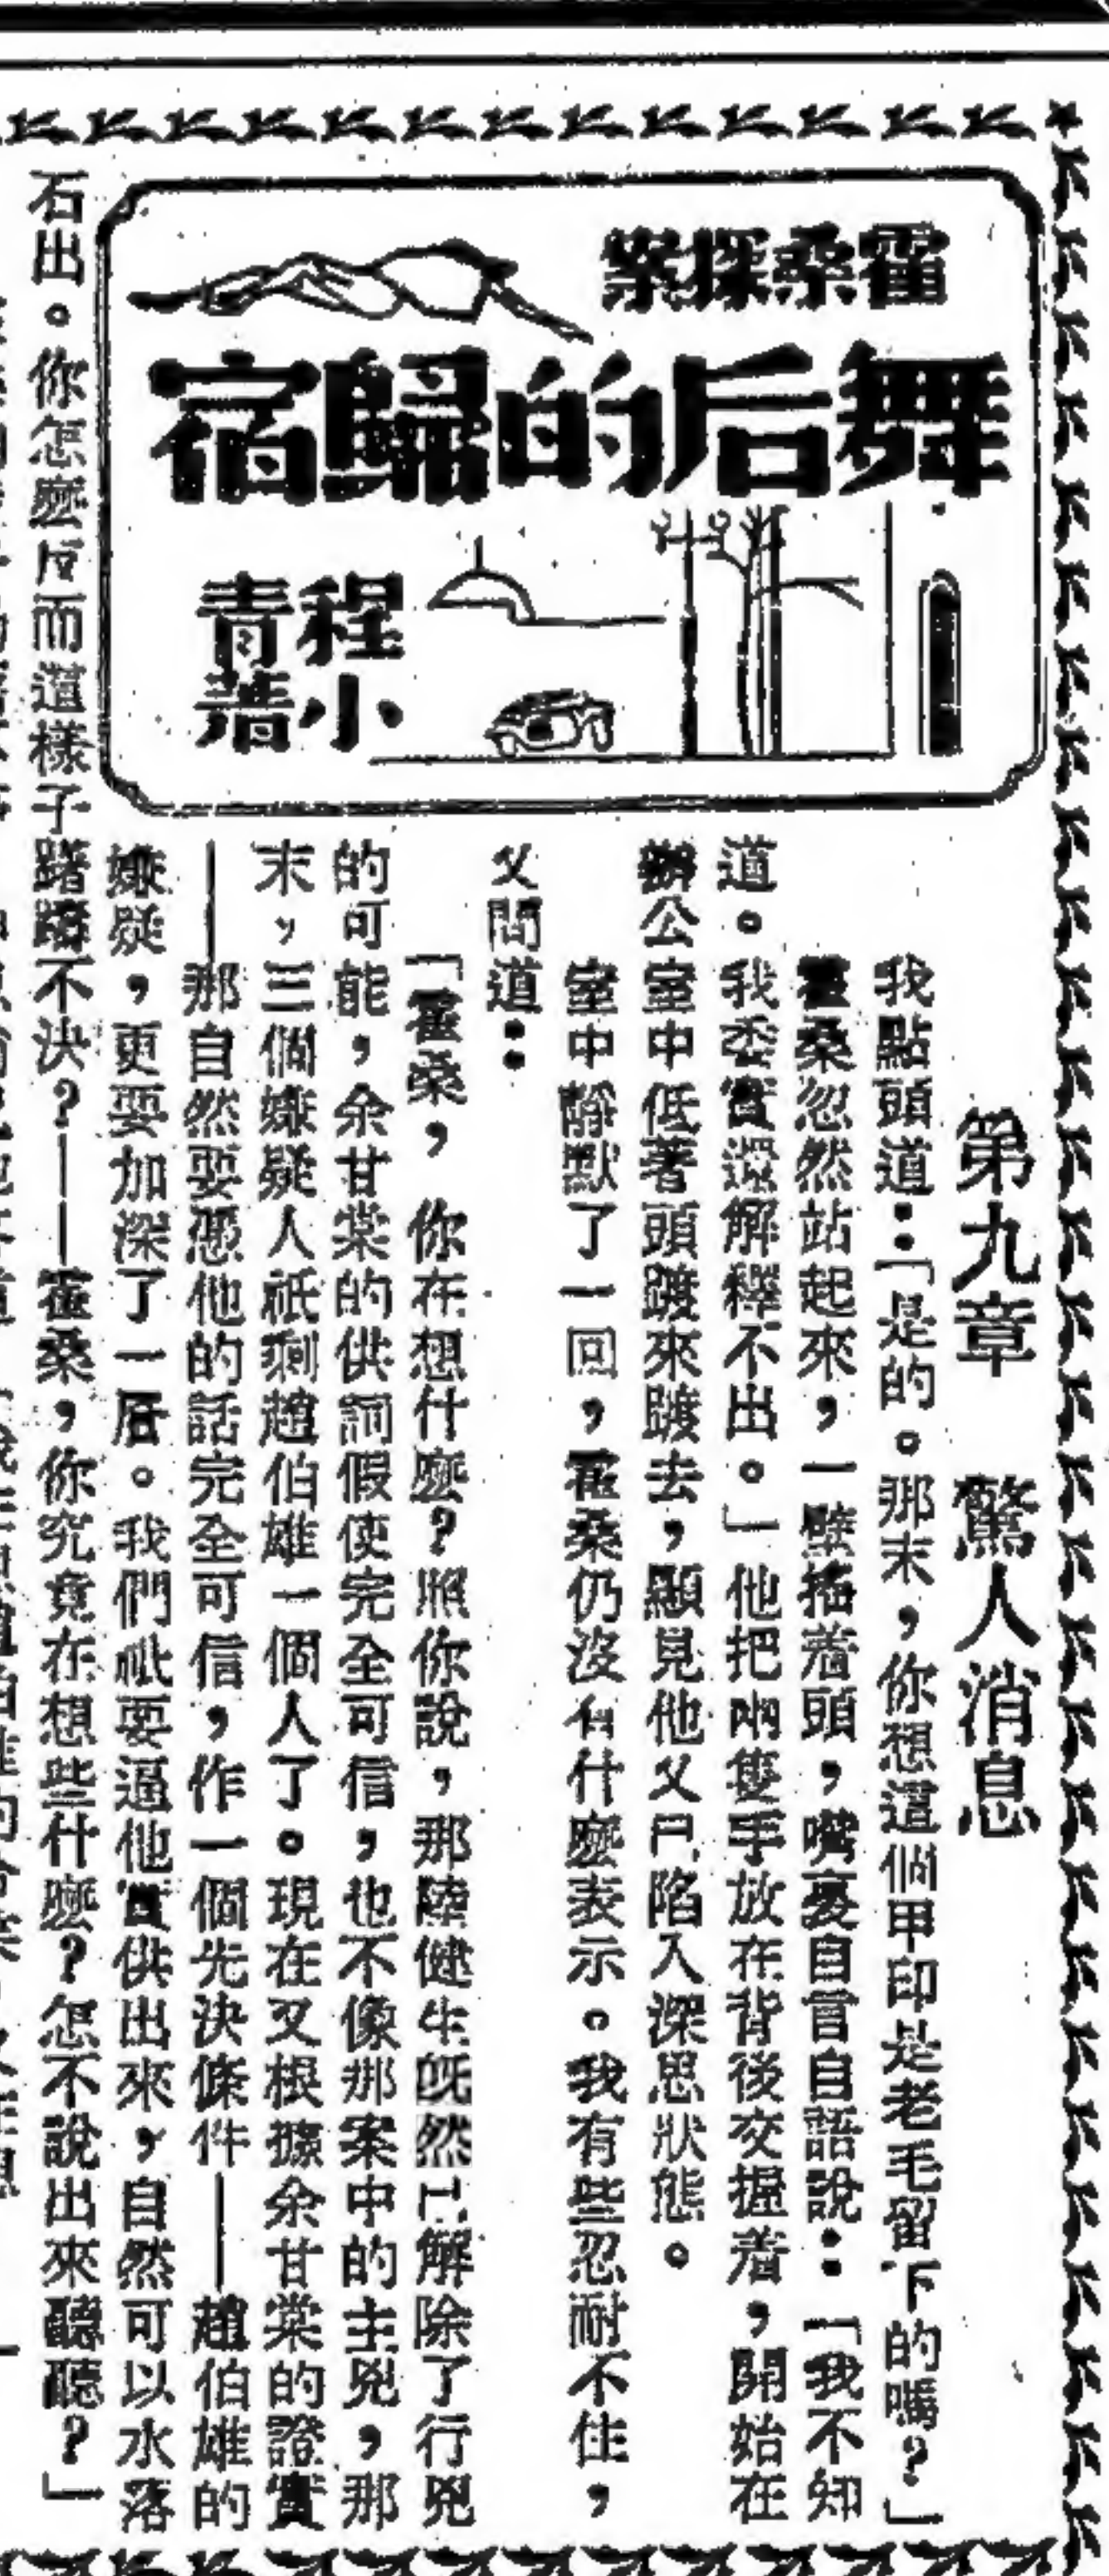 霍桑探案
舞后的歸宿
程小青著
第九章　驚人消息
我點頭道：「是的。那末，你想這個甲印是老毛留下的嗎？」
霍桑忽然站起來，一壁搖着頭，嘴裏自言自語說：「我不知
道。我委實還解釋不出。」他把兩隻手放在背後交握着，開始在
辦公室中低著頭踱來踱去，顯見他又已陷入深思狀態。
室中靜默了一回，霍桑仍沒有什麼表示。我有些忍耐不住，
又問道：
「霍桑，你在想什麼？照你說，那陸健生既然已解除了行兇
的可能，余甘棠的供詞假使完全可信，也不像那案中的主兇，那
末，三個嫌疑人祇剩趙伯雄一個人了。現在又根據余甘棠的證實
——那自然要憑他的話完全可信，作一個先決條件——趙伯雄的
嫌疑，更要加深了一層。我們祇要逼他實供出來，自然可以水落
石出。你怎麼反而這樣子躊躇不決？——霍桑，你究竟在想些什麼？怎不說出來聽聽？」